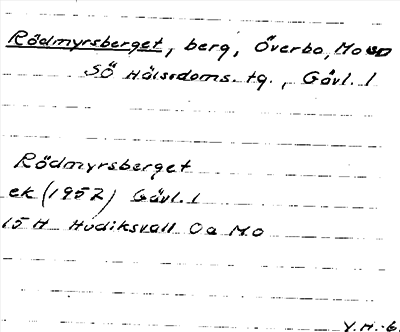 Rödmyrsberget, berg, Överbo, Mo sn
SÖ Hälsodoms. tg., Gävl. l
Rödmyrsberget
ek (1957) Gävl. l
15 H Hudiksvall 0a M.O
Y.H. -6